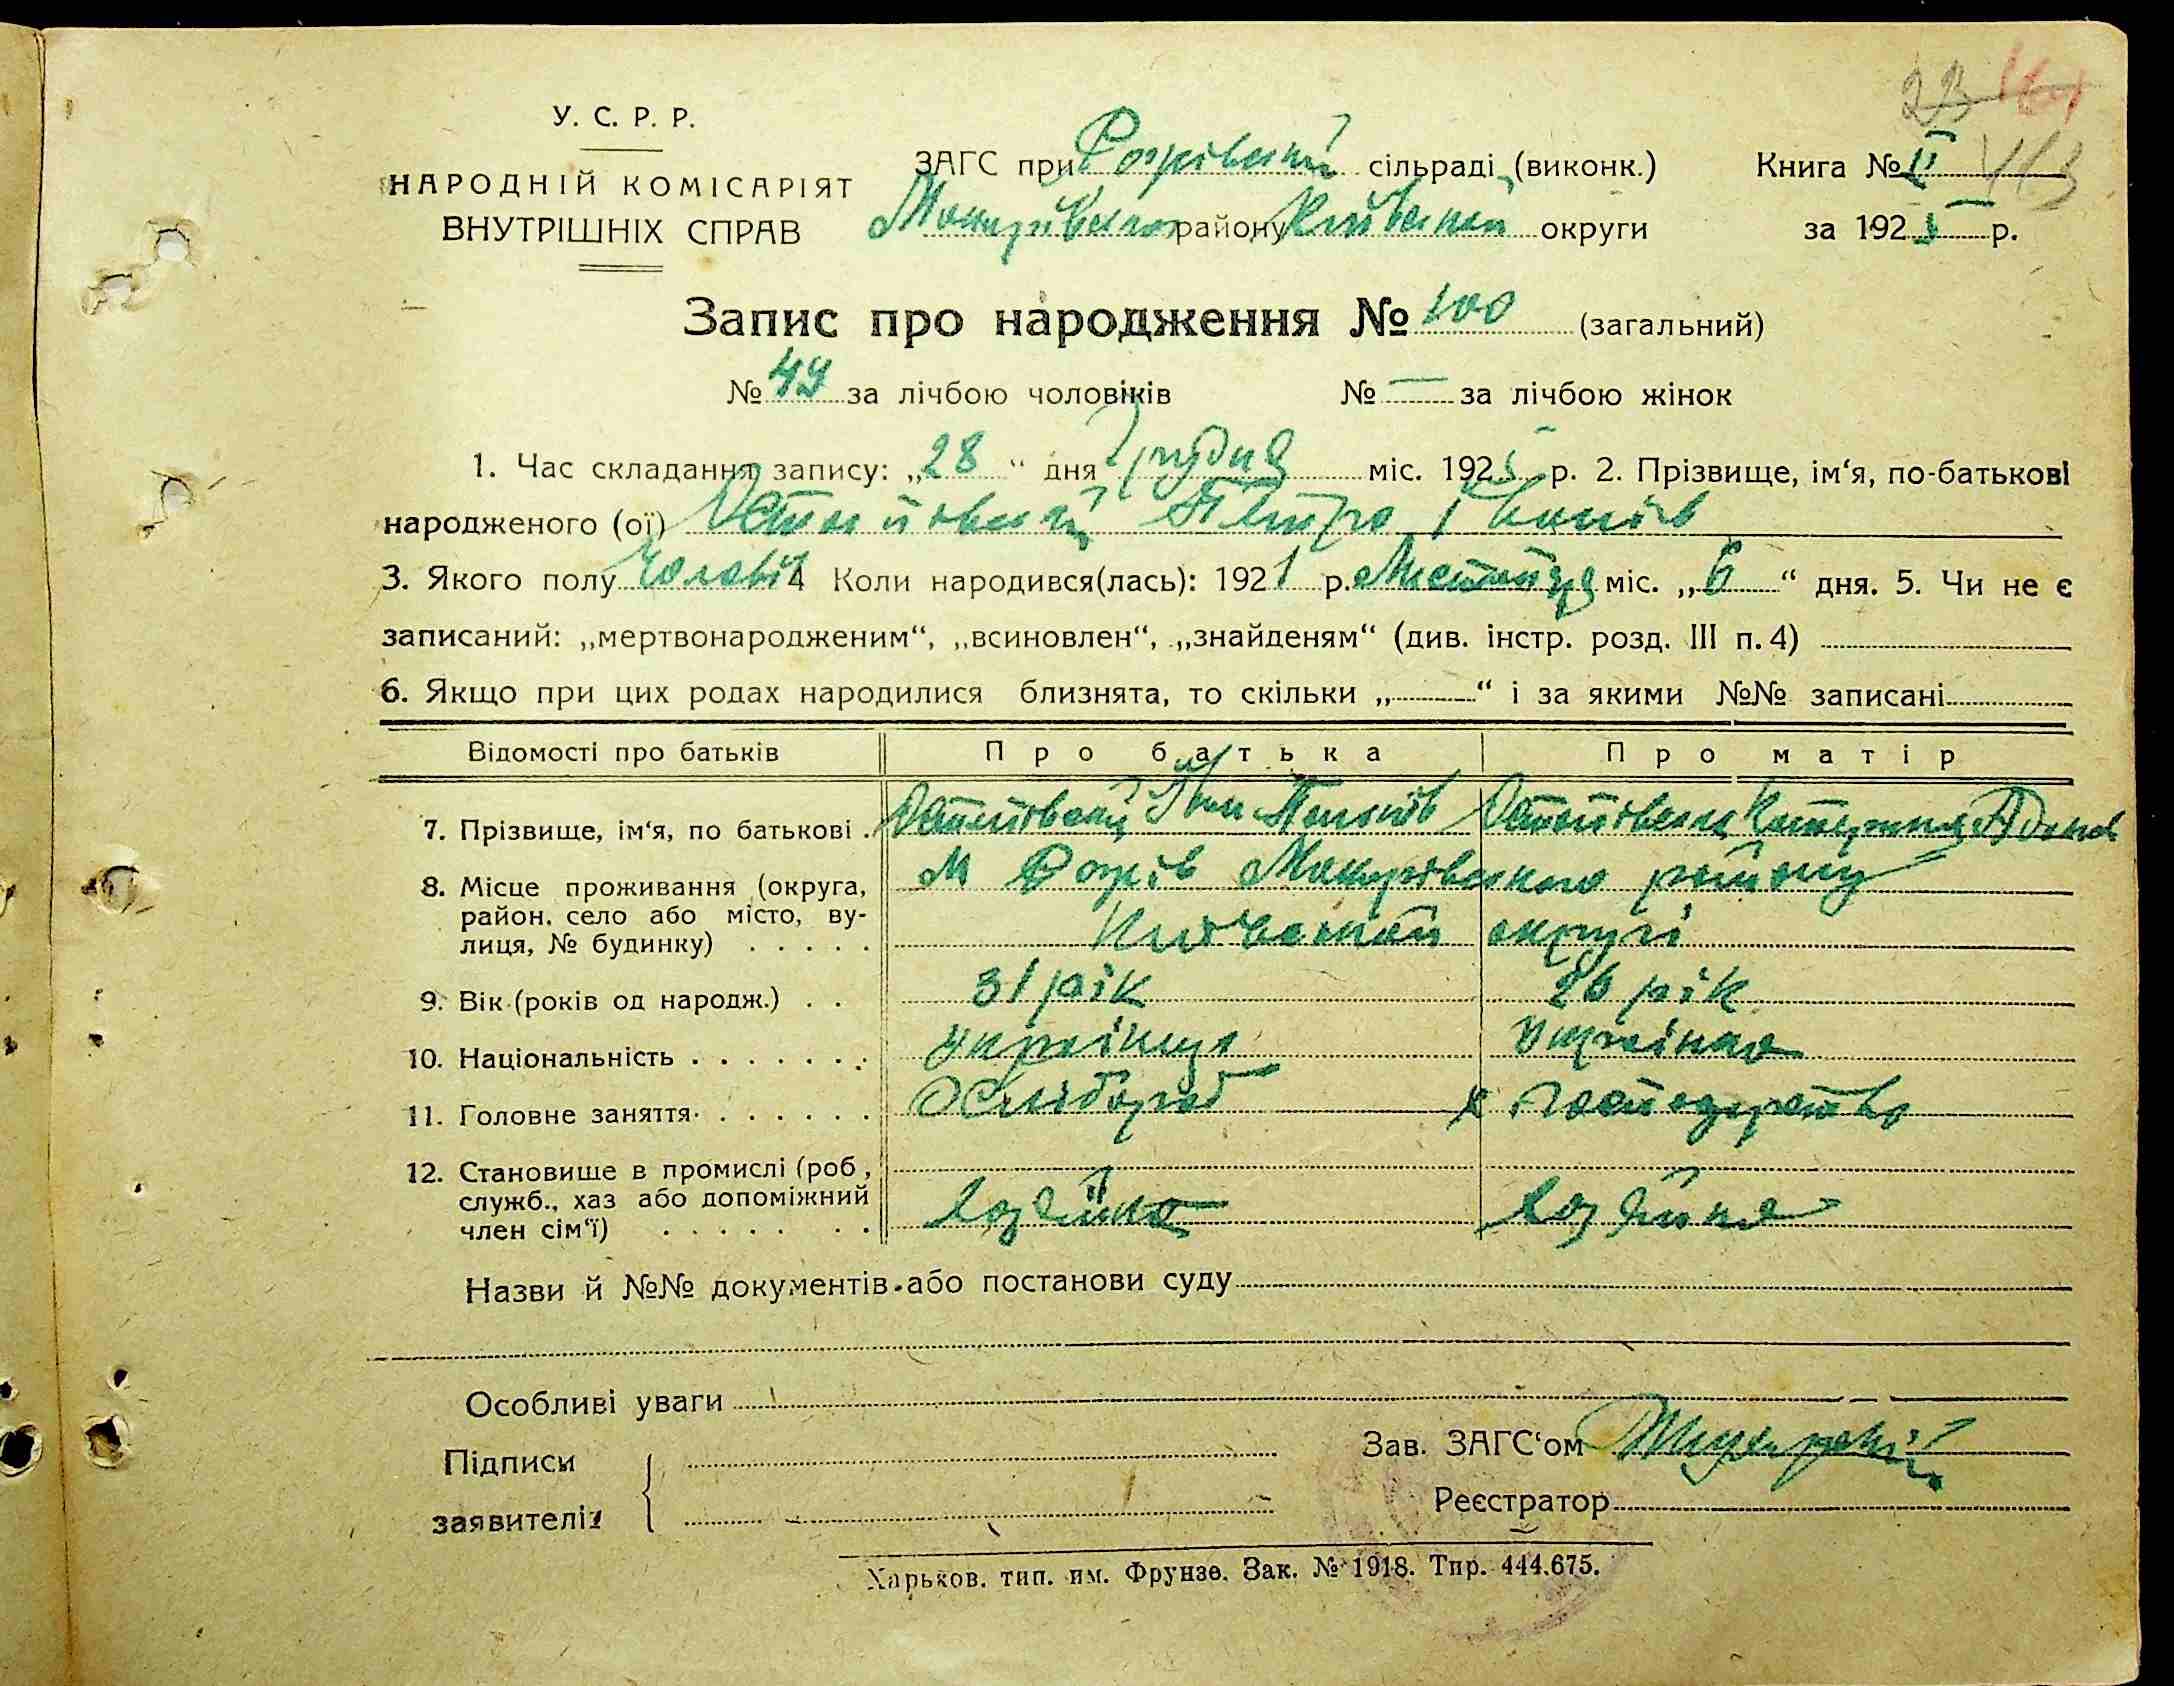 23 161
У. С. Р. Р.
ЗАГС при Рожівській сільраді (виконк.) Книга № II 113
НАРОДНІЙ КОМІСАРІЯТ
ВНУТРІШНІХ СПРАВ
Макарівського району Київської округи за 1925 р.
Запис про народження № 100 (загальний)
№ 49 за лічбою чоловіків № — за лічбою жінок
1. Час складання запису: „28“ дня Грудня міс. 1925 р. 2. Прізвище, ім‘я, по-батькові
народженого (ої) Петро Іванів
3. Якого полу чолові 4 Коли народився(лась): 1921 р. міс. „6“ дня. 5. Чи не є
записаний: „мертвонародженим“, „всиновлен“, „знайденям“ (див. інстр. розд. III п. 4)
6. Якщо при цих родах народилися близнята, то скільки „ “ і за якими №№ записані
Відомості про батьків Про батька Про матір
7. Прізвище, ім‘я, по батькові . Іван Катерина
8. Місце проживання (округа, м Рожів Макарівського району
район. село або місто, ву-
лиця, № будинку) . . . . . Київської округи
9. Вік (років од народж.) . . 31 рік 26 рік
10. Національність . . . . . . . українець українка
11. Головне заняття . . . . . . . Хлібороб х господарство
12. Становище в промислі (роб,
служб., хаз або допоміжний хазяйка
член сім‘ї) . . . . . . .
Назви й №№ документів або постанови суду
Особливі уваги
Підписи Зав. ЗАГС‘ом
заявителів Реєстратор
Харьков. тип. им. Фрунзе. Зак. № 1918. Тир. 444.675.